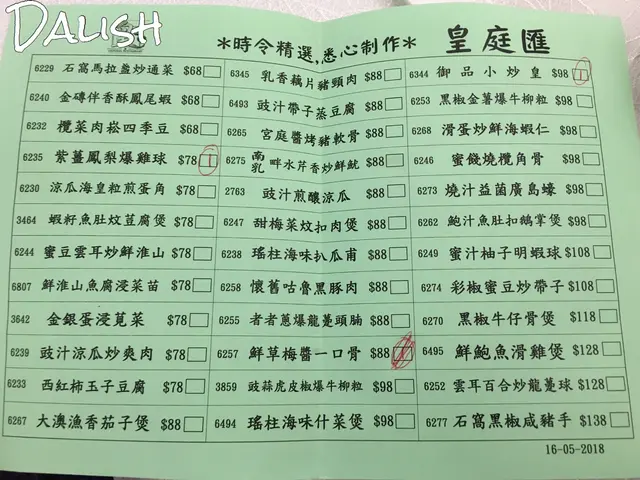 DALISH
*時令精選,悉心制作* 皇庭匯
6229 石窩馬拉盞炒通菜 $68 6345 乳香藕片豬頸肉 $88 6344 御品小炒皇 $98 1
6240 金磚伴香酥鳳尾蝦 $68 6493 豉汁帶子蒸豆腐 $88 6253 黑椒金薯爆牛柳粒 $98
6232 欖菜肉崧四季豆 $68 6265 宮庭醬烤豬軟骨 $88 6268 滑蛋炒鮮海蝦仁 $98
6235 紫薑鳳梨爆雞球 $78 1 6275 南乳 畔水芹香炒鮮魷 $88 6246 蜜餞燒欖角骨 $98
6230 涼瓜海皇粒煎蛋角 $78 2763 豉汁煎釀涼瓜 $88 6273 燒汁益菌廣島蠔 $98
3464 蝦籽魚肚炆荳腐煲 $78 6247 甜梅菜炆扣肉煲 $88 6262 鮑汁魚肚扣鵝掌煲 $98
6244 蜜豆雲耳炒鮮淮山 $78 6238 瑤柱海味扒瓜甫 $88 6249 蜜汁柚子明蝦球 $108
6807 鮮淮山魚腐浸菜苗 $78 6258 懷舊咕魯黑豚肉 $88 6274 彩椒蜜豆炒帶子 $108
3642 金銀蛋浸莧菜 $78 6255 者者蔥爆龍躉頭腩 $88 6270 黑椒牛仔骨煲 $118
6239 豉汁涼瓜炒爽肉 $78 6257 鮮草梅醬一口骨 $88 6495 鮮鮑魚滑雞煲 $128
6233 西紅柿玉子豆腐 $78 3859 豉蒜虎皮椒爆牛柳粒 $98 6252 雲耳百合炒龍躉球 $128
6267 大澳漁香茄子煲 $88 6494 瑤柱海味什菜煲 $98 6277 石窩黑椒咸豬手 $138
16-05-2018